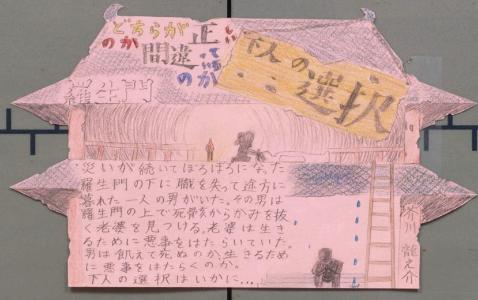 どちらが正しい
のか間違っているのか
下人の選択
羅生門
災いが続いてぼろぼろになった
羅生門の下に職を失って途方に
暮れた一人の男がいた。その男は
羅生門の上で死骸からかみを抜
く老婆を見つける。老婆は生き
るために悪事をはたらいていた。
男は飢えて死ぬのか、生きるため
に悪事をはたらくのか。
下人の選択はいかに…
芥川龍之介